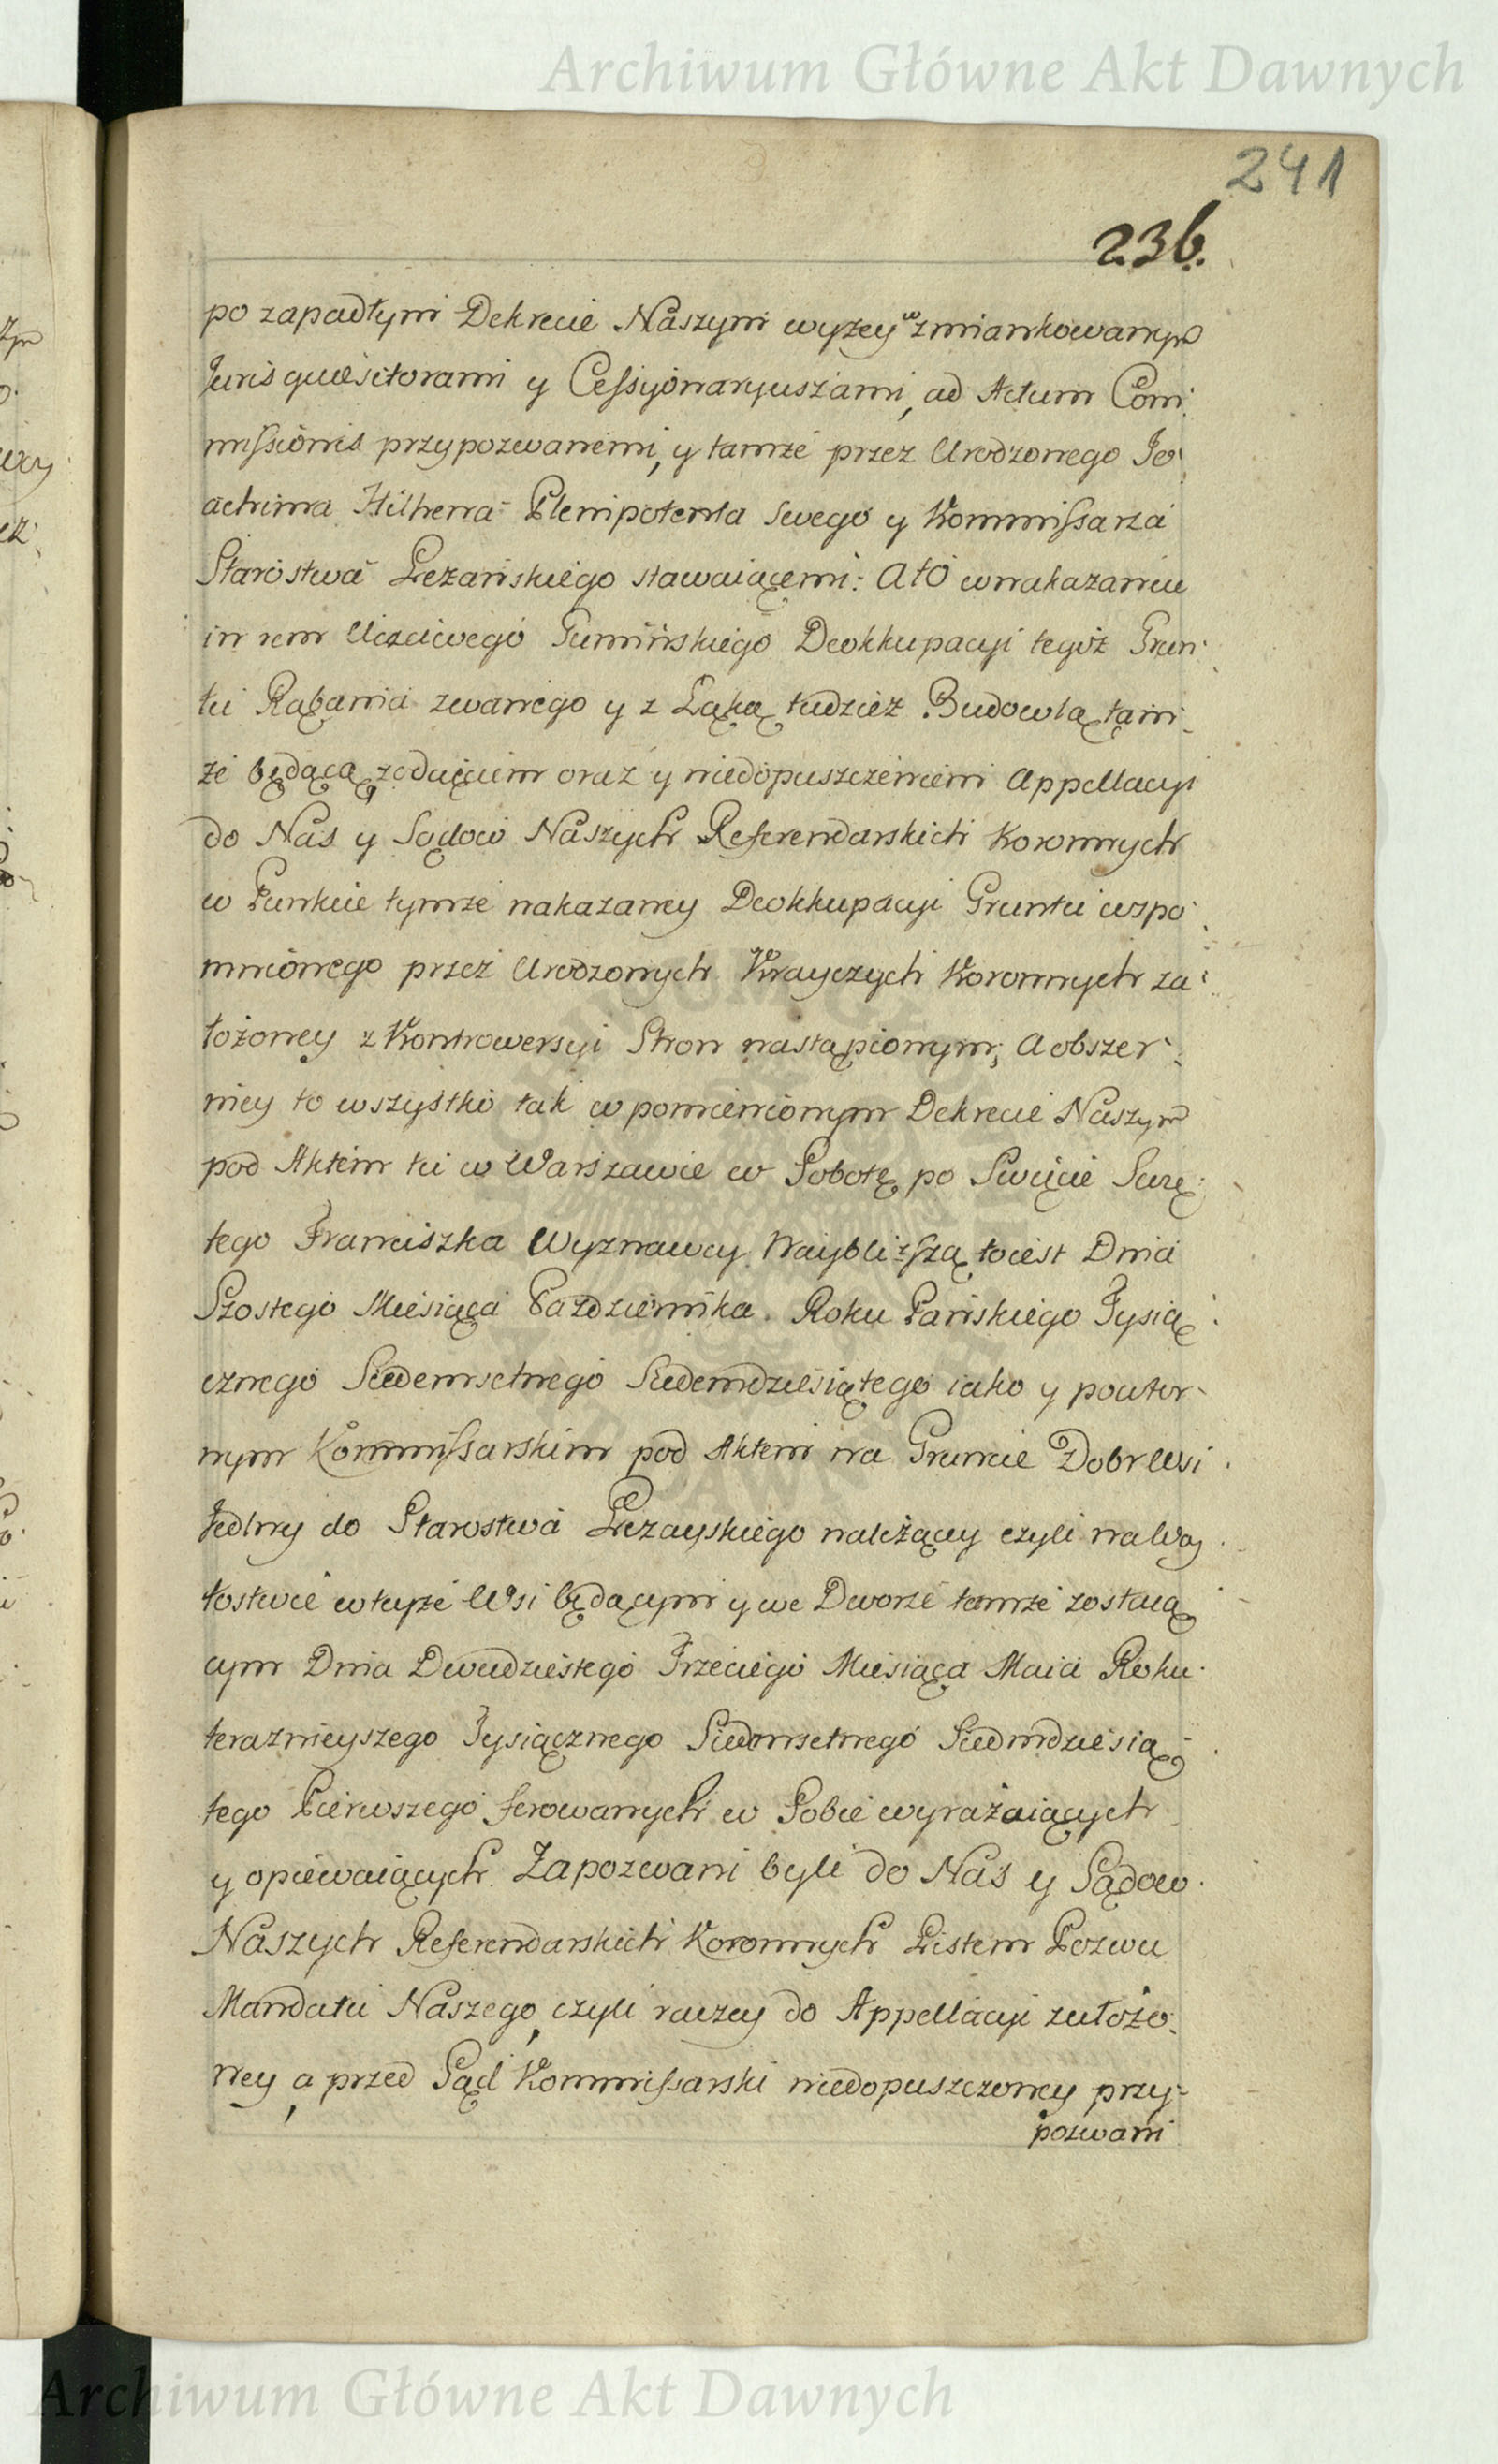 Archiwum Główne Akt Dawnych
241
236.
po zapadłym Dekrecie Naszym wyzey wzmiankowanym
Jurisquiesitorami y Cessyonaryuszami, ad Actum Com:
missionis przypozwanemi, y tamże przez Urodzonego Jo:
achima Hilhena Plenipotenta swego y Kommissarza
Starostwa Leżanskiego stawaiącemi: Ato w nakazaniu
in rem Uczciwego Guminskiego Deokkupacyi tegoż Grun:
tu Rąbania zwanego y z Łąką tudzież Budowlą tam:
że będącą zdaięciem oraz y niedopuszczeniem Appellacyi
do Nas y Sądow Naszych Referendarskich Koronnych
w Punkcie tymże nakazaney Deokkupacyi Gruntu wspo:
mnionego przez Urodzonych Krayczych Koronnych za:
łożoney z Kontrowersyi Stron nastąpionym; A obszer:
niey to wszystko tak w pomienionym Dekrecie Naszym
pod Aktem tu w Warszawie w Sobotę po Swięcie Swię:
tego Franciszka Wyznawcy Naybliższą toiest Dnia
Szostego Miesiąca Pazdziernika Roku Pańskiego Tysią:
cznego Siedemsetnego Siedemdziesiątego iako y powtor:
nym Kommissarskim pod Aktem na Gruncie Dobr Wsi
Jedlny do Starostwa Leżayskiego należący czyli na Woy:
tostwie w teyże Wsi będącym y we Dworze tamże zostaią:
cym Dnia Dwudziestego Trzeciego Miesiąca Maia Roku
teraznieyszego Tysiącznego Siedmsetnego Siedmdziesią:
tego Pierwszego ferowanych w Sobie wyrażaiących
y opiewaiących. Zapozwani byli do Nas y Sądow
Naszych Referendarskich Koronnych Listem Pozwu
Mandatu Naszego, czyli raczey do Appellacyi założo:
ney, a przed Sąd Kommissarski niedopuszczoney przy:
pozwani
Archiwum Główne Akt Dawnych